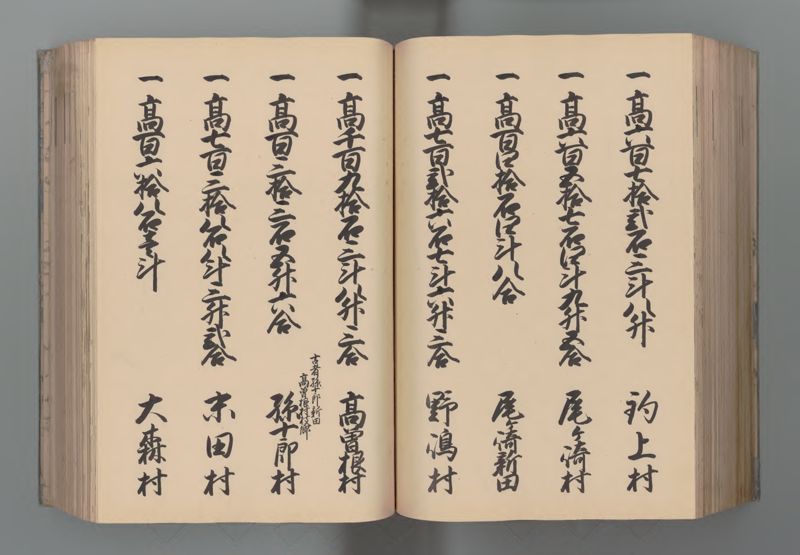 一高六百七拾弐石三斗八升 釣上村
一高六百五拾七石四斗九升五合 尾ヶ崎村
一高百四拾石四斗八合 尾ヶ崎新田
一高七百弐拾六石七斗六升三合 野嶋村
一高千百九拾石三斗八升三合 高曽根村
古者孫十郎新田
高曽根村枝郷
一高百三拾三石五升六合 孫十郎村
一高七百三拾八石八斗三升弐合 末田村
一高百六拾八石壱斗 大森村